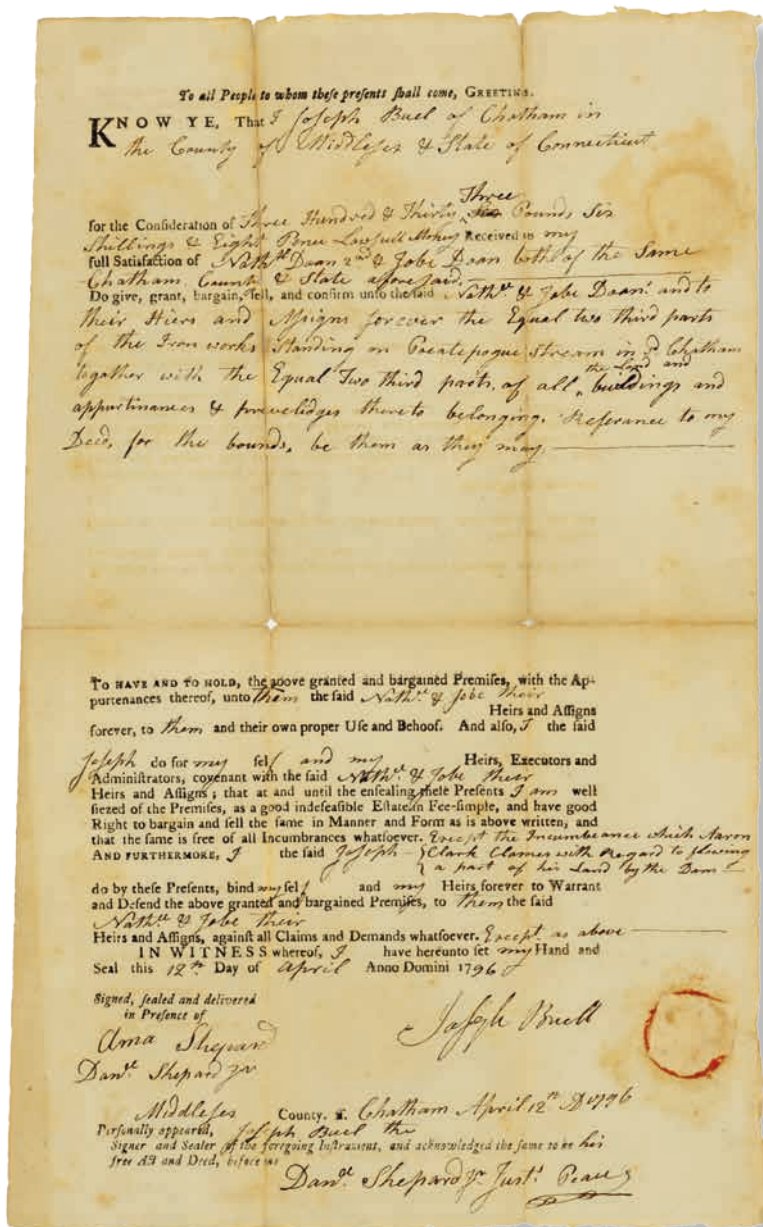 To all People to whom these presents shall come, GREETING.
KNOW YE, That I Joseph Buel of Chatham in
the County of Middlesex & State of Connecticut
Three
for the Consideration of Three Hundred & Thirty Pounds Six
Shillings & Eight Pence Lawfull Money Received in my
full Satisfaction of Nathll Doan 2nd & Jobe Doan both of the Same
Chatham County & State aforesaid.
Do give, grant, bargain, sell, and confirm unto the said Nathll & Jobe Doan and to
their Hiers and Assigns forever the Equal two third parts
of the Iron works Standing on Pocatepogue Stream in sd Chatham
the Land and
together with the Equal Two third parts of all buildings and
appurtinances & preveledges thereto belonging. Referance to my
Deed, for the bounds, be them as they may
TO HAVE AND TO HOLD, the above granted and bargained Premises, with the Ap-
purtenances thereof, unto them the said Nathll & Jobe their
Heirs and Assigns
forever, to them and their own proper Use and Behoof. And also, I the said
Joseph do for my self and my Heirs, Executors and
Administrators, covenant with the said Nathll & Jobe their
Heirs and Assigns; that at and until the ensealing these Presents I am well
siezed of the Premises, as a good indefeasible Estate in Fee-simple, and have good
Right to bargain and sell the same in Manner and Form as is above written; and
that the same is free of all Incumbrances whatsoever. Except the Incumbeance which Aaron
AND FURTHERMORE, I the said Joseph Clark Clames with Regard to flowing
a part of his Land by the Dam
do by these Presents, bind my self and my Heirs forever to Warrant
and Defend the above granted and bargained Premises, to them the said
Nathll & Jobe their
Heirs and Assigns, against all Claims and Demands whatsoever. Except as above
IN WITNESS whereof, I have hereunto set my Hand and
Seal this 12th Day of April Anno Domini 1796
Signed, sealed and delivered
in Presence of
Joseph Buell
Ama Shepard
Danll Shepard Jnr
Middlesex County, ss. Chatham April 12th AD 1796
Personally appeared, Joseph Buel the
Signer and Sealer of the foregoing Instrument, and acknowledged the same to be his
free Act and Deed, before me
Danll Shepard Jr Just. Peace